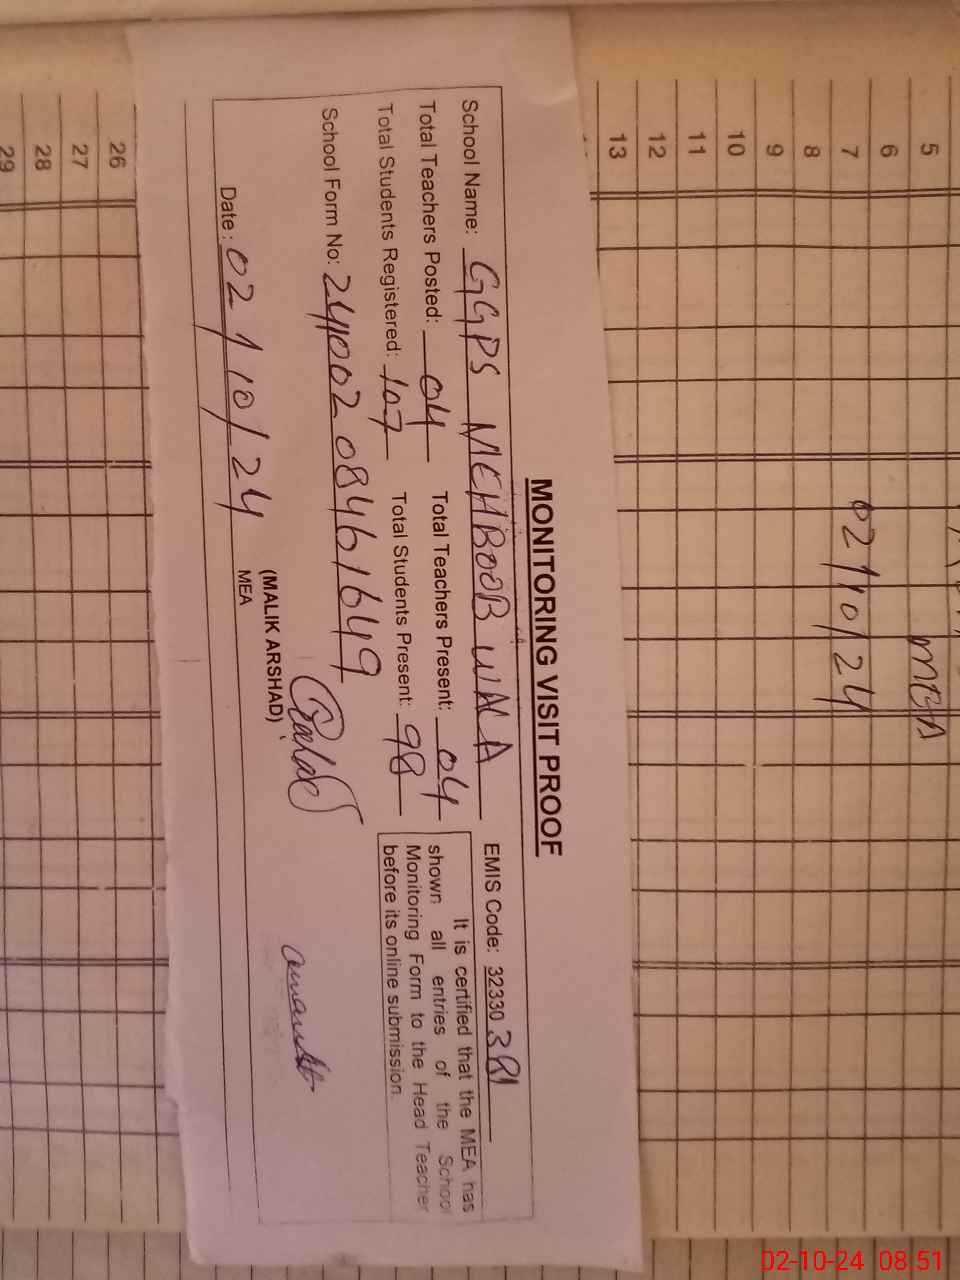 MONITORING VISIT PROOF
School Name: GGPS MEHBOOB WALA EMIS Code: 32330381
Total Teachers Posted: 04 Total Teachers Present: 04
Total Students Registered: 107 Total Students Present: 98
School Form No: 24100208461649
It is certified that the MEA has
shown all entries of the School
Monitoring Form to the Head Teacher
before its online submission.
Date: 02/10/24
(MALIK ARSHAD)
MEA
5
6
7
8
9
10
11
12
13
26
27
28
29
MEA
02/10/24
02-10-24 08:51